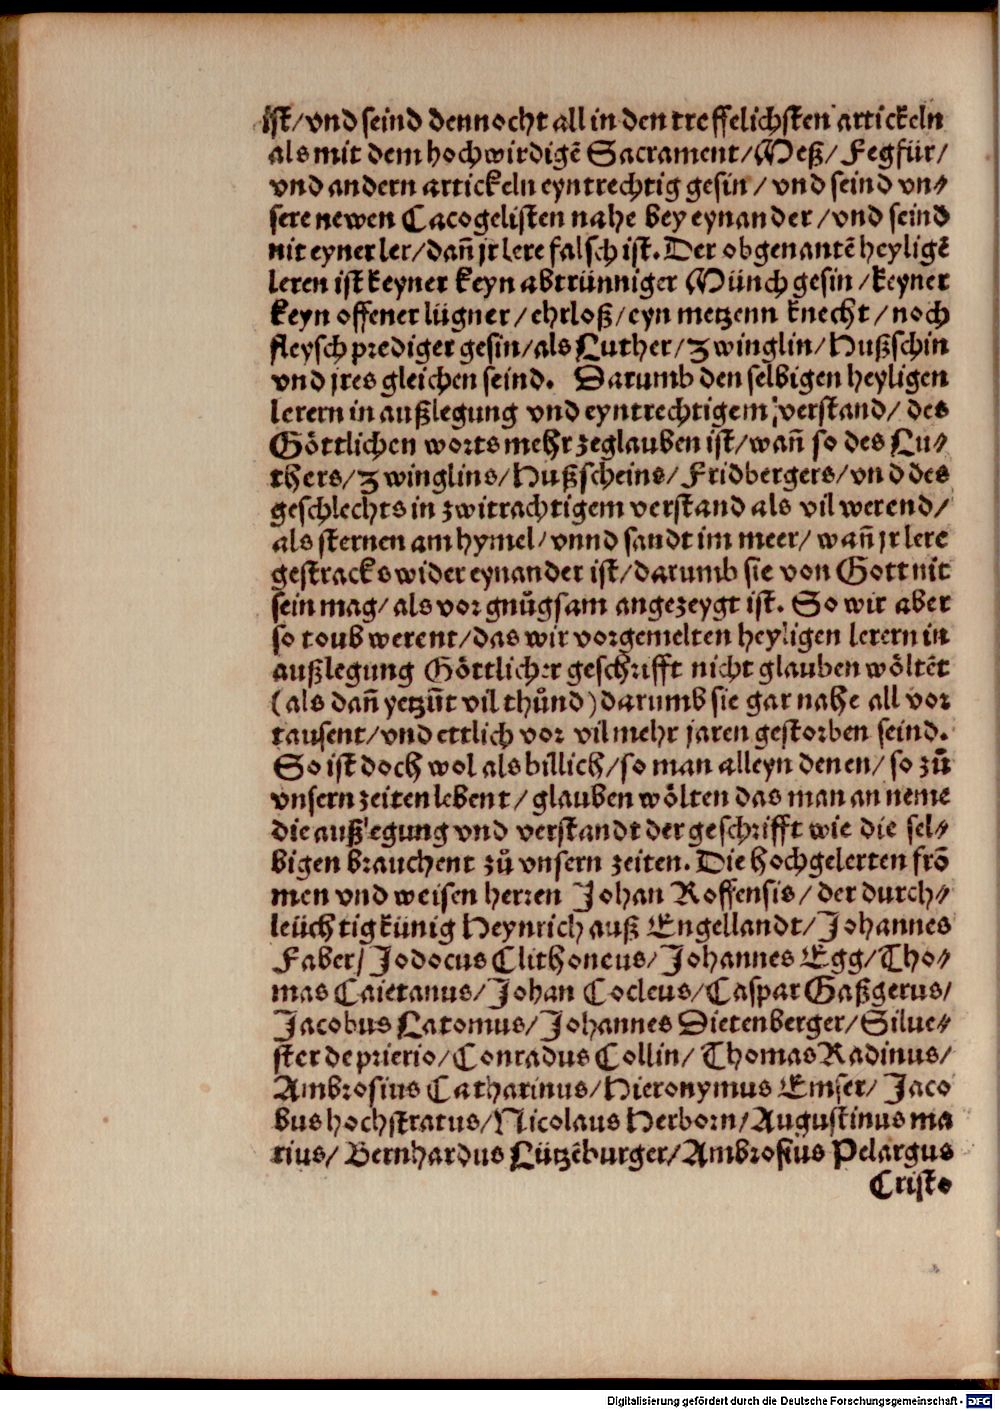 ist/ vnd seind dennocht all in den treffelichsten artickeln
als mit dem hochwirdigẽ Sacrament/ Meß/ Fegfür/
vnd andern artickeln eyntrechtig gesin / vnd seind vn⸗
sere newen Cacogelisten nahe bey eynander / vnd seind
nit eyner ler/ dañ jr lere falsch ist. Der obgenantẽ heyligẽ
leren ist keyner keyn abtrünniger Münch gesin / keyner
keyn offener lügner / ehrloß / eyn metzenn knecht / noch
fleysch prediger gesin/ als Luther/ Zwinglin/ Hußschin
vnd jres gleichen seind. Darumb den selbigen heyligen
lerern in außlegung vnd eyntrechtigem verstand/ des
Göttlichen worts mehr zeglauben ist/ wañ so des Lu⸗
thers/ Zwinglins/ Hußscheins/ Fridbergers/ vnd des
geschlechts in zwitrachtigem verstand als vil werend/
als sternen am hymel/ vnnd sandt im meer/ wañ jr lere
gestracks wider eynander ist/ darumb sie von Gott nit
sein mag/ als vor gnůgsam angezeygt ist. So wir aber
so toub werent/ das wir vorgemelten heyligen lerern in
außlegung Göttlicher geschrifft nicht glauben wöltẽt
(als dañ yetzũt vil thůnd) darumb sie gar nahe all vor
tausent/ vnd ettlich vor vil mehr jaren gestorben seind.
So ist doch wol als billich/ so man alleyn denen/ so zů
vnsern zeiten lebent / glauben wölten das man an neme
die außlegung vnd verstandt der geschrifft wie die sel⸗
bigen brauchent zů vnsern zeiten. Die hochgelerten frõ
men vnd weisen herren Johan Roffensis/ der durch⸗
leüchtig künig Heynrich auß Engellandt/ Johannes
Faber/ Jodocus Clithoneus/ Johannes Egg/ Tho⸗
mas Caietanus/ Johan Cocleus/ Caspar Gaßgerus/
Jacobus Latomus/ Johannes Dietenberger/ Silue⸗
ster de prierio/ Conradus Collin/ Thomas Radinus/
Ambrosius Catharinus/ Hieronymus Emser/ Jaco
bus hochstratus/ Nicolaus Herborn/ Augustinus ma
rius/ Bernhardus Lützẽburger/ Ambrosius Pelargus
Crist⸗
Digitalisierung gefördert durch die Deutsche Forschungsgemeinschaft - DFG